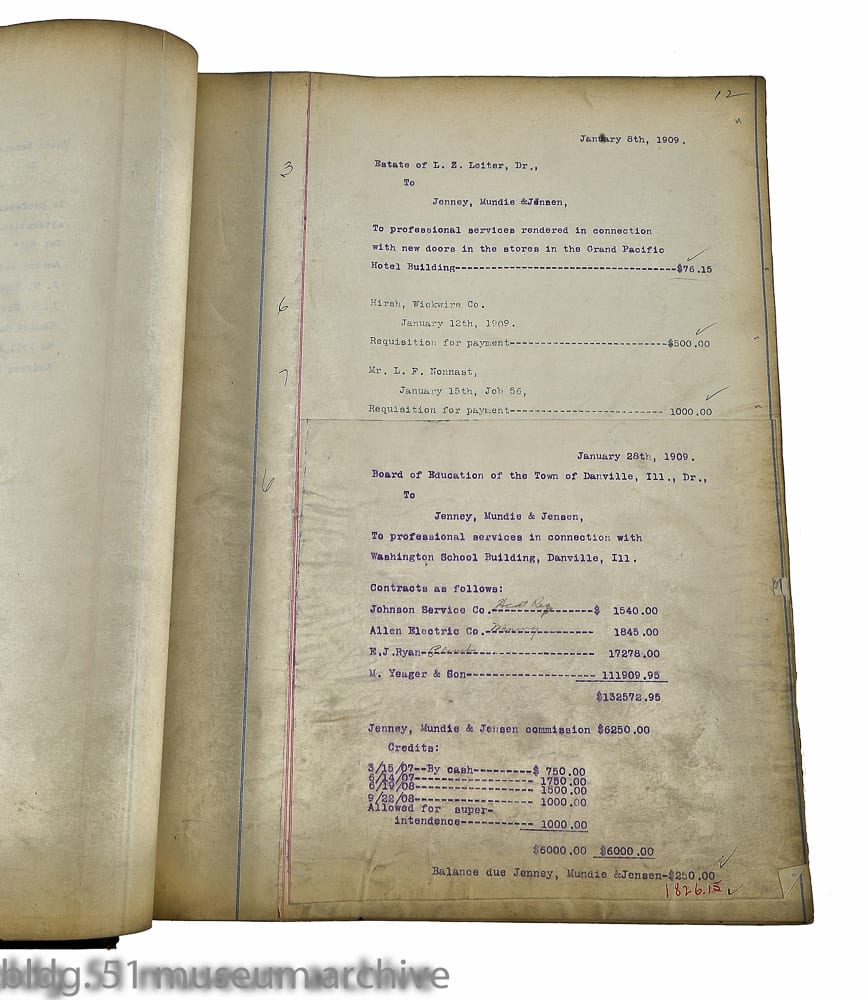 12
January 8th, 1909.
3
Estate of L. Z. Leiter, Dr.,
To
Jenney, Mundie &Jensen,
To professional services rendered in connection
with new doors in the stores in the Grand Pacific
Hotel Building-----------------------------------$76.15
6
Hirsh, Wickwire Co.
January 12th, 1909.
Requisition for payment-------------------------$500.00
7
Mr. L. F. Nonnast,
January 15th, Job 56,
Requisition for payment------------------------- 1000.00
January 28th, 1909.
6
Board of Education of the Town of Danville, Ill., Dr.,
To
Jenney, Mundie & Jensen,
To professional services in connection with
Washington School Building, Danville, Ill.
Contracts as follows:
Johnson Service Co.----------------$ 1540.00
Allen Electric Co.----------------- 1845.00
E.J.Ryan--------------------------- 17278.00
M. Yeager & Son-------------------- 111909.95
$132572.95
Jenney, Mundie & Jensen commission $6250.00
Credits:
3/15/07--By cash---------$ 750.00
6/14/07------------------- 1750.00
6/19/08------------------- 1500.00
9/22/08------------------- 1000.00
Allowed for super-
intendence----------- 1000.00
$6000.00 $6000.00
Balance due Jenney, Mundie &Jensen-$250.00
1826.15
bldg. 51 museum archive